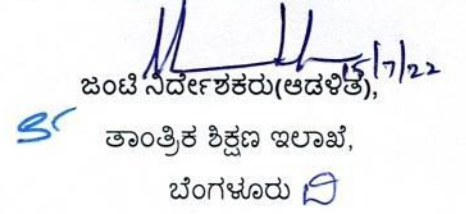 15/7/22
ಜಂಟಿ ನಿರ್ದೇಶಕರು(ಆಡಳಿತ),
ತಾಂತ್ರಿಕ ಶಿಕ್ಷಣ ಇಲಾಖೆ,
ಬೆಂಗಳೂರು